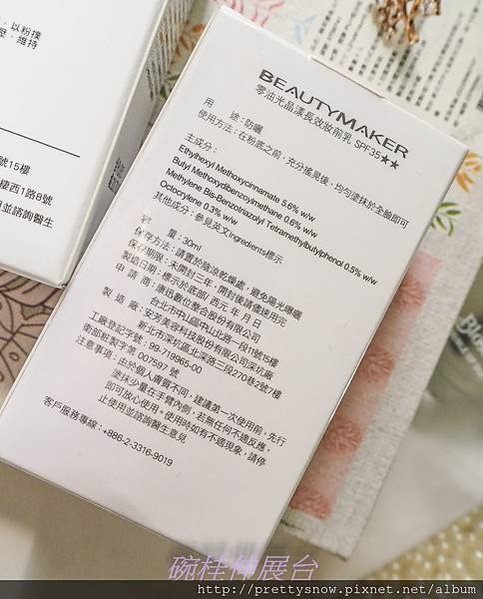 以粉撲
壓,維持
號15樓
樓西1路8號
並諮詢醫生
BEAUTYMAKER
零油光晶漾長效妝前乳 SPF35★★
用 途:防曬
使用方法:在粉底之前,充分搖晃後,均勻塗抹於全臉即可
主成分:
Ethylhexyl Methoxycinnamate 5.6% w/w
Butyl Methoxydibenzoylmethane 0.6% w/w
Methylene Bis-Benzotriazolyl Tetramethylbutylphenol 0.5% w/w
Octocrylene 0.3% w/w
其他成分:參見英文Ingredients標示
容 量:30ml
保存方法:請置於陰涼乾燥處,避免陽光曝曬
保存期限:未開封三年,開封後請儘速用完
製造日期:標示於底部/ 西元 年 月 日
申 請 商:康迅數位整合股份有限公司
台北市中山區中山北路一段11號15樓
製 造 廠:安芳美容科技股份有限公司深坑廠
新北市深坑區北深路三段270巷2號7樓
工廠登記字號:99-719965-00
衛部粧製字第 007597 號
注意事項:由於個人膚質不同,建議第一次使用前,先行
塗抹少量在手臂內側,若無任何不適反應,
即可放心使用。使用時如有不適現象,請停
止使用並諮詢醫生意見
客戶服務專線:+886-2-3316-9019
碗桂伸展台
http://prettysnow.pixnet.net/album